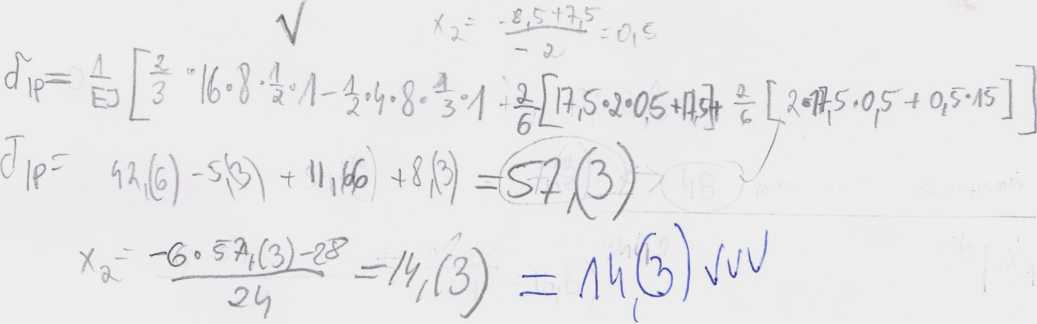 √ x₂ = (-8,5+7,5)/(-2) = 0,5
δ₁ₚ = 1/EJ [ 2/3 · 16 · 8 · 1/2 · 1 - 1/2 · 4 · 8 · 1/3 · 1 + 2/6 [17,5 · 2 · 0,5 + 17,5] + 2/6 [2 · 17,5 · 0,5 + 0,5 · 15] ]
δ₁ₚ = 42,(6) - 5,(3) + 11,(66) + 8,(3) = 57,(3)
x₂ = (-6 · 57,(3) - 28)/24 = 14,(3) = 14,(3) √√√